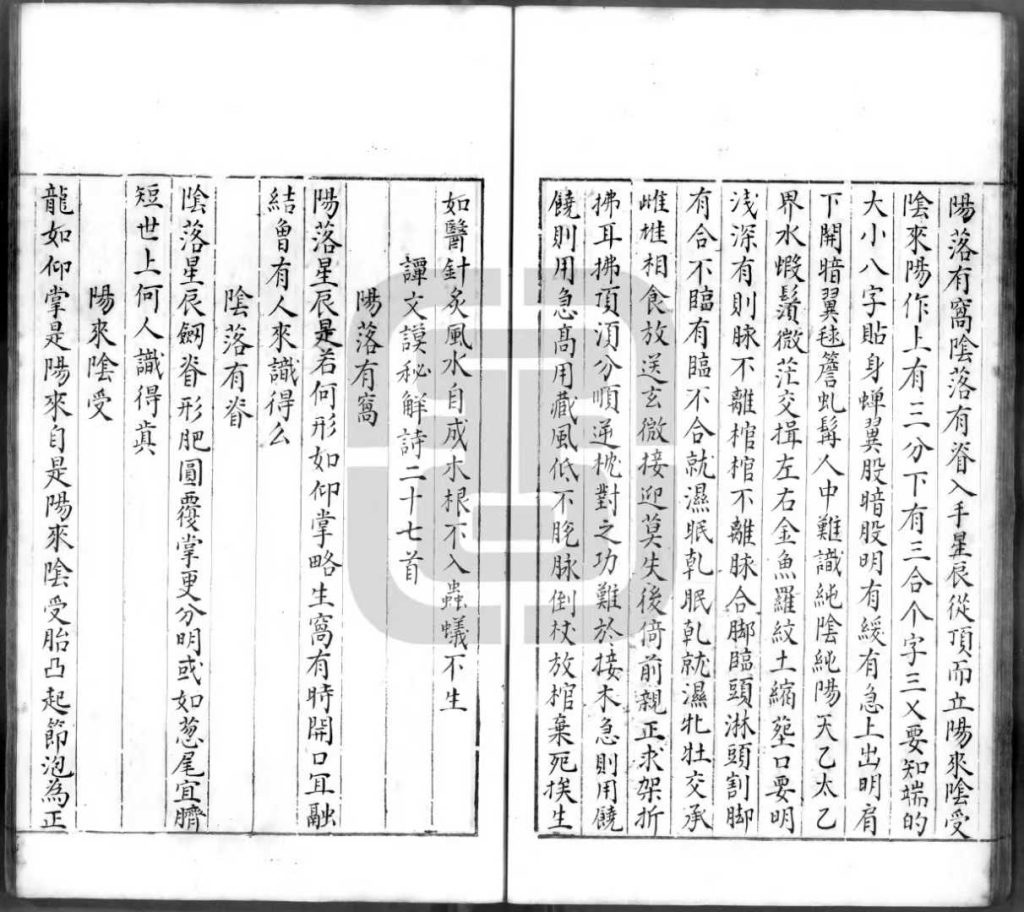 陽落有窩陰落有脊入手星辰從頂而立陽來陰受
陰來陽作上有三分下有三合个字三乂要知端的
大小八字貼身蟬翼股暗股明有緩有急上出明肩
下開暗翼毬簷虬髯人中難識純陰純陽天乙太乙
界水蝦鬚微茫交揖左右金魚羅紋土縮塟口要明
浅深有則脉不離棺棺不離脉合脚臨頭淋頭割脚
有合不臨有臨不合就濕眠乹眠乹就濕牝牡交承
雌雄相食放送玄微接迎莫失後倚前親正求架折
拂耳拂頂湏分順逆枕對之功難於接木急則用饒
饒則用急髙用藏風低不脫脉倒杖放棺棄死挨生
如醫針炙風水自成木根不入蟲蟻不生
譚文謨秘解詩二十七首
陽落有窩
陽落星辰是若何形如仰掌略生窩有時開口冝融
結曾有人來識得么
陰落有脊
陰落星辰劔脊形肥圓覆掌更分明或如葱尾宜臍
短世上何人識得真
陽來陰受
龍如仰掌是陽來自是陽來陰受胎凸起節泡為正